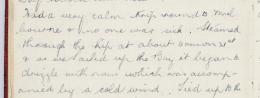 Had a very calm trip round to Mel
bourne & no one was sick. Steamed
through the at about
& as we sailed up the Bay it began to
drizzle with rain which was accomp-
anied by a cold wind. Tied up to the